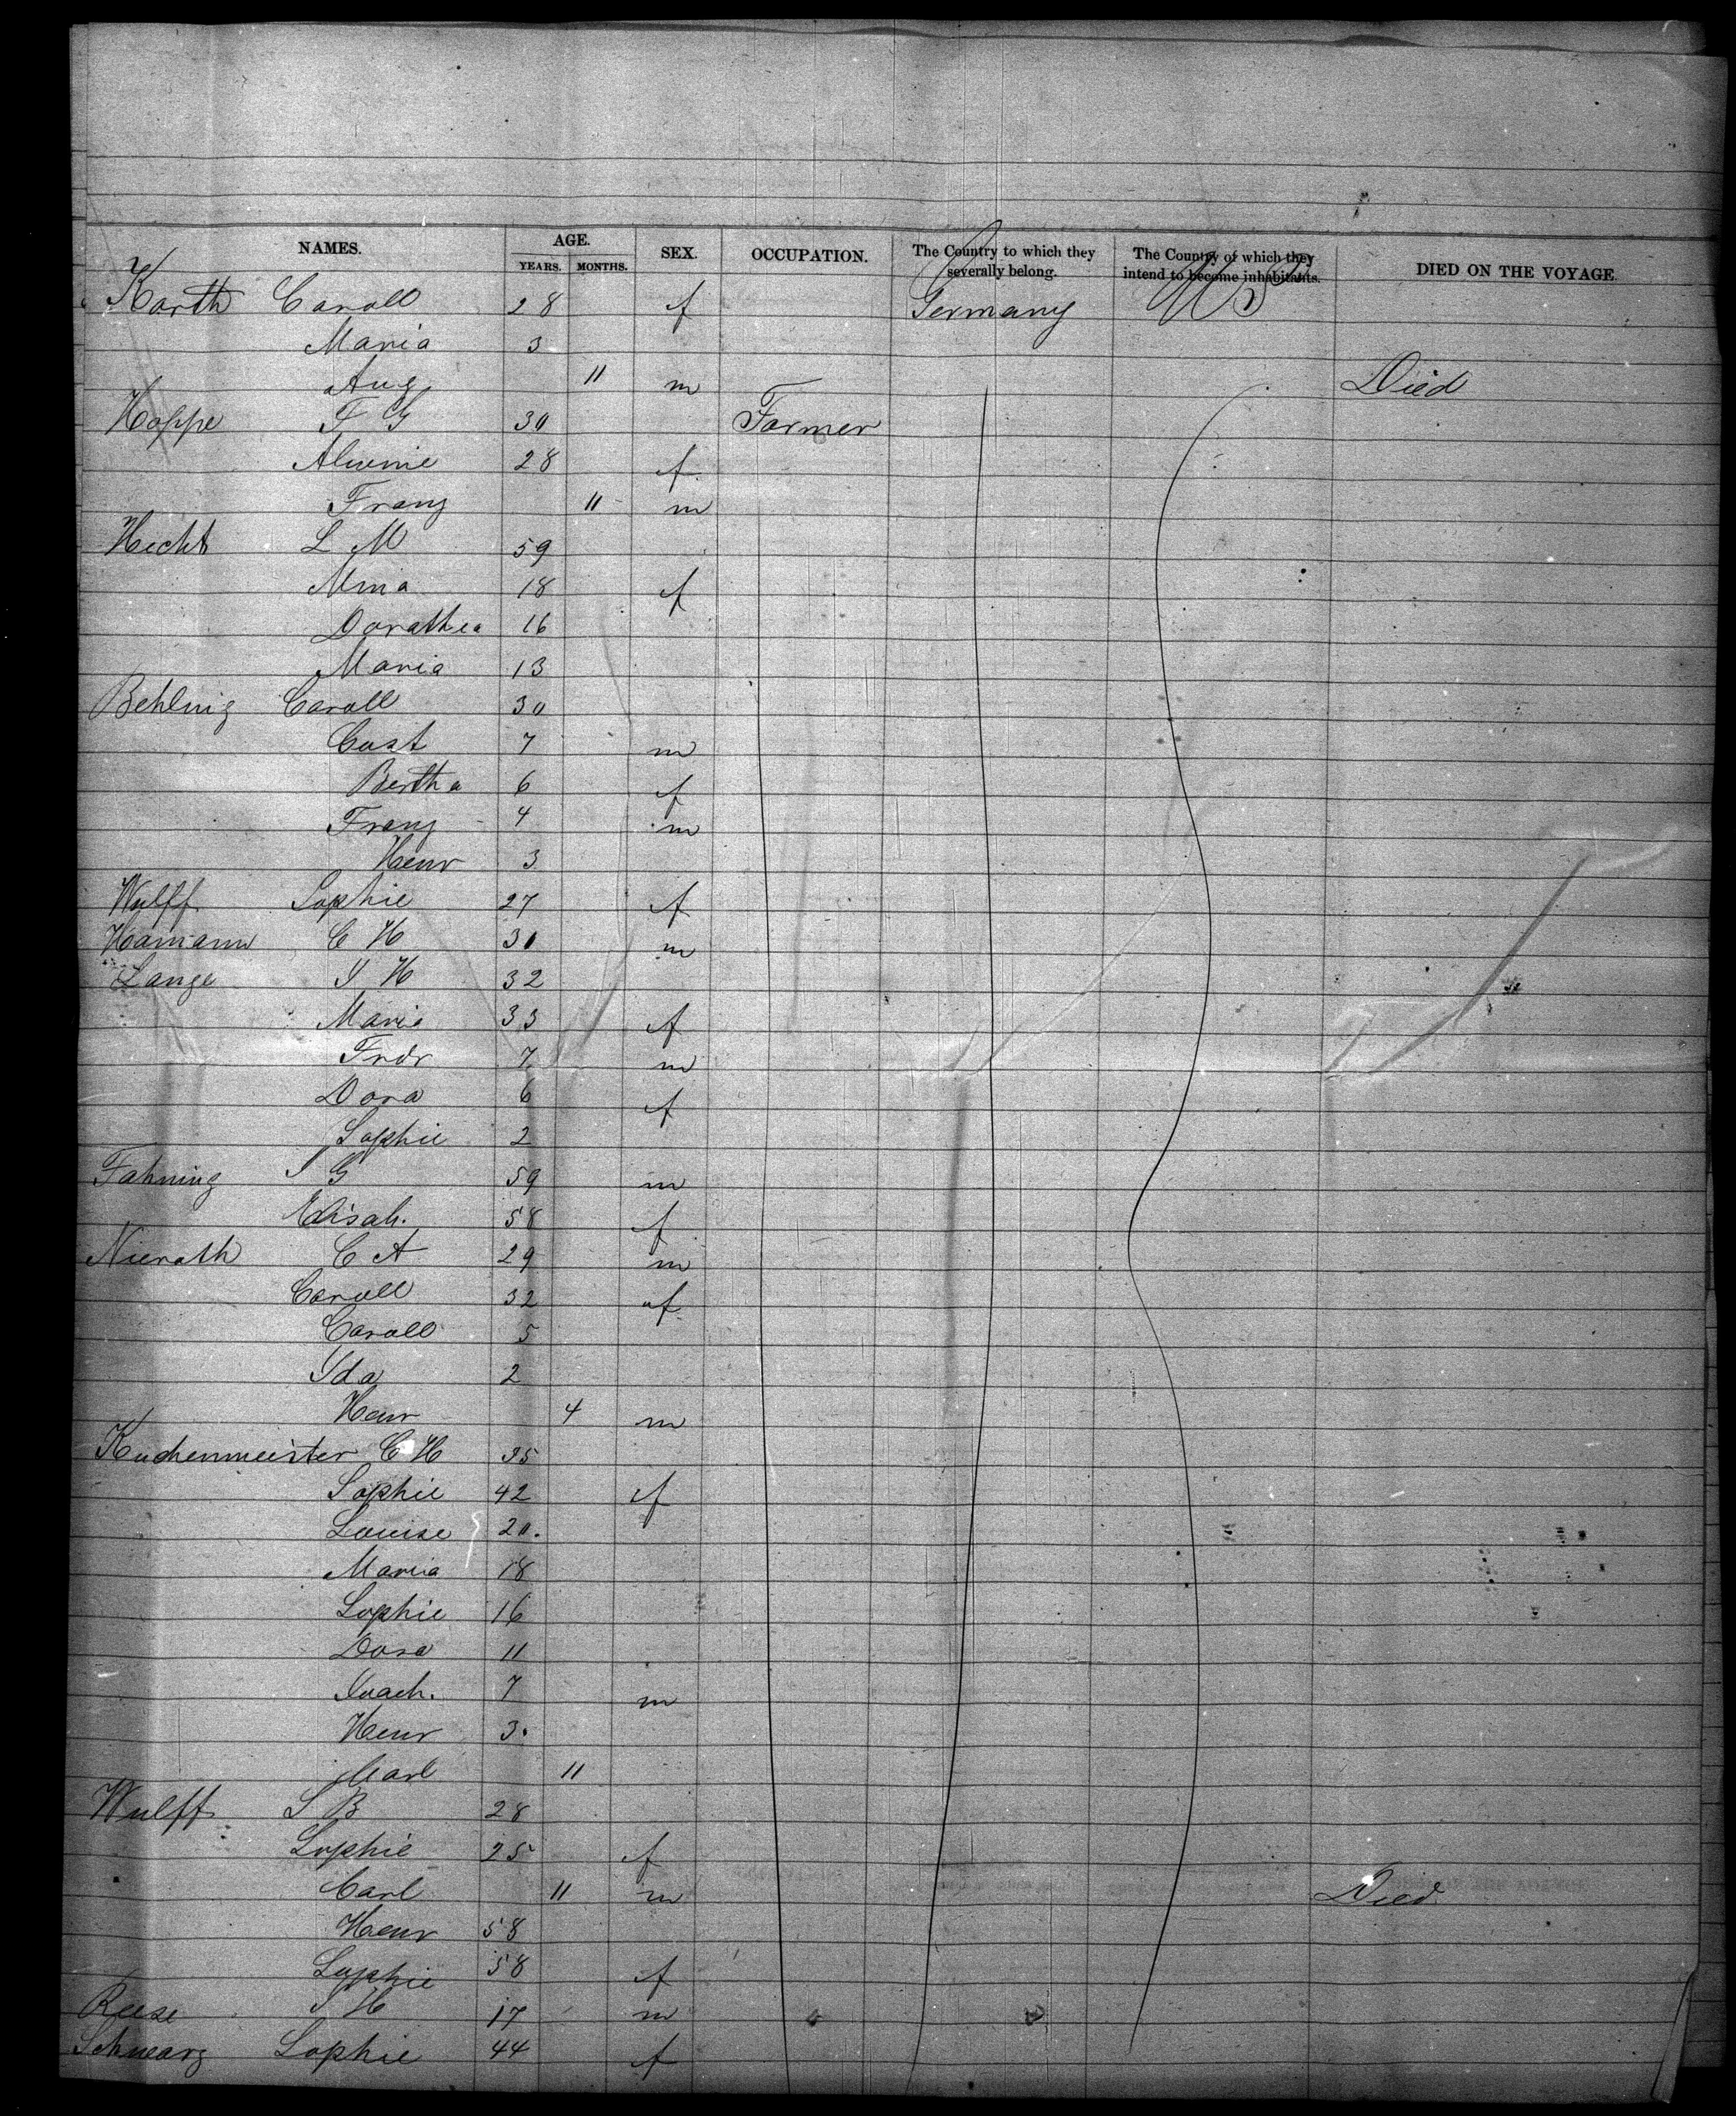 NAMES. AGE. SEX. OCCUPATION. The Country to which they severally belong. The Country of which they intend to become inhabitants. DIED ON THE VOYAGE.
YEARS. MONTHS.
Karth Caroll 28 f Germany U S
Maria 3
Aug. 11 m Died
Hoppe F G 30 Farmer
Alwenie 28 f
Franz 11 m
Hecht L M 59
Mina 18 f
Dorathea 16
Maria 13
Behling Caroll 30
Gust 7 m
Bertha 6 f
Franz 4 m
Henr 3
Wulff Sophie 27 f
Hamann C H 30 m
Lange J H 32
Maria 33 f
Fridr 7 m
Dora 6 f
Sophie 2
Fahning J G 59 m
Elisab. 58 f
Nierath C A 29 m
Caroll 32 f
Caroll 5
Ida 2
Henr 4 m
Kuchenmeister C H 35
Sophie 42 f
Louise 20.
Maria 18
Sophie 16
Dora 11
Joach. 7 m
Henr 3.
Carl 11
Wulff J B 28
Sophie 25 f
Carl 11 m Died
Henr 58
Sophie 58 f
Reese J H 17 m
Schwarz Sophie 44 f